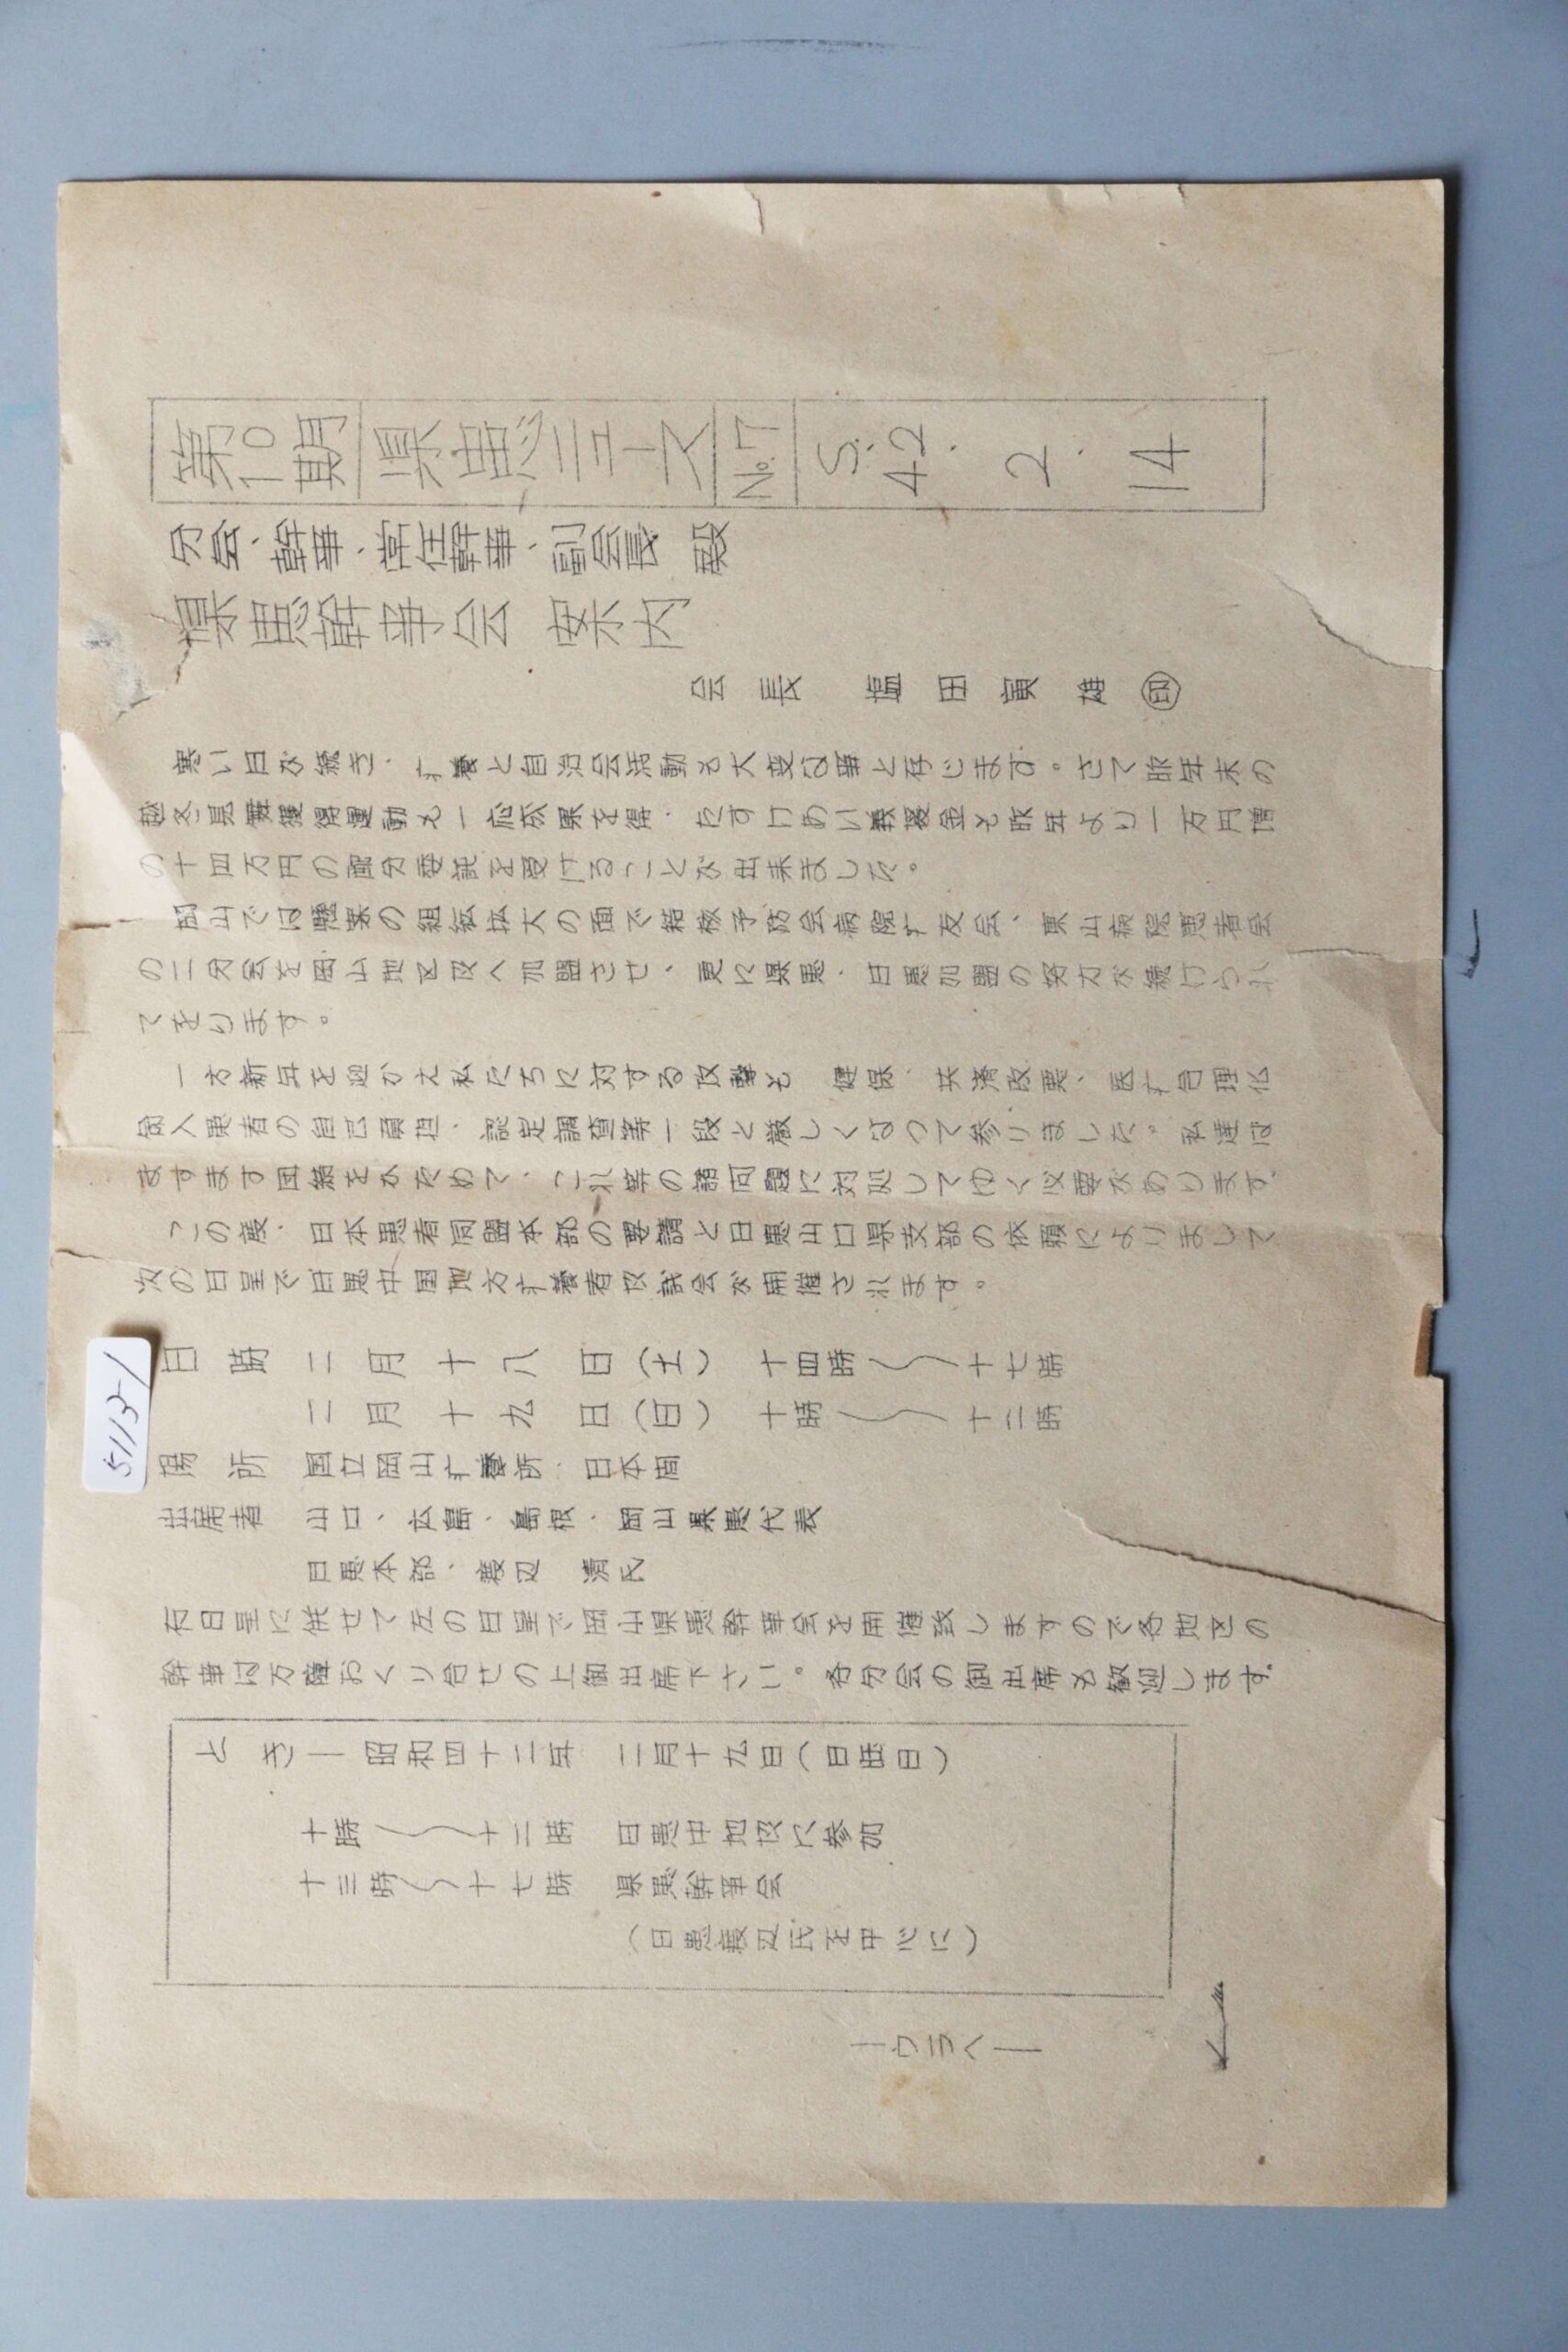 第10期 県患ニュース No.7 S.42.2.14
分会、幹事、常任幹事、副会長 殿
県患幹事会 案内
会長 塩田寅雄 ㊞
寒い日が続き、疗養と自治会活動も大変な事と存じます。さて昨年末の
越冬資金獲得運動も一応成果を得、たすけあい義援金も昨年より一万円増
の十四万円の配分委託を受けることが出来ました。
岡山では懸案の組織拡大の面で結核予防会病院疗友会、東山病院患者会
の二分会を岡山地区反へ加盟させ、更に県患、日患加盟の努力が続けられ
ております。
一方新年を迎かえ私たちに対する攻撃も 健保、共済改悪、医疗合理化
同人患者の自己負担、認定調査等一段と厳しくなって参りました。私達は
ますます団結をかためて、これ等の諸问題に対処してゆく必要があります、
この度、日本患者同盟本部の要請と日患山口県支部の依頼によりまして
次の日呈で日患中国地方疗養者反試会が開催されます。
日時 二月十八日(土) 十四時〜十七時
二月十九日(日) 十時〜十二時
場所 国立岡山疗養所、日本间
出席者 山口、広島、島根、岡山県患代表
日患本部、渡辺 清氏
右日呈に併せて左の日呈で岡山県患幹事会を開催致しますので各地区の
幹事は万障おくり合せの上御出席下さい。各分会の御出席も歓迎します。
とき―昭和四十二年 二月十九日(日曜日)
十時〜十二時 日患中地反に参加
十三時〜十七時 県患幹事会
(日患渡辺氏を中心に)
―ウラへ―
5113-1